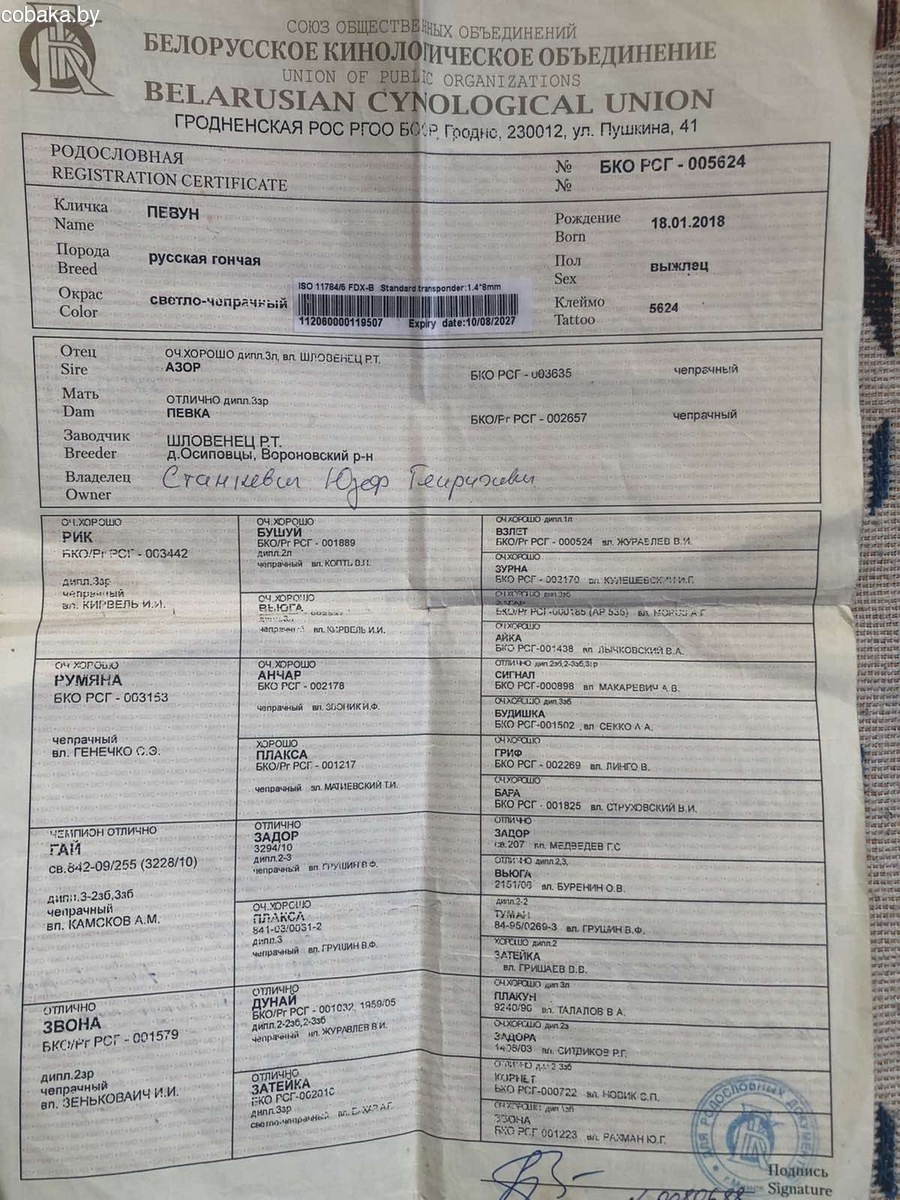 cobaka.by
СОЮЗ ОБЩЕСТВЕННЫХ ОБЪЕДИНЕНИЙ
БЕЛОРУССКОЕ КИНОЛОГИЧЕСКОЕ ОБЪЕДИНЕНИЕ
UNION OF PUBLIC ORGANIZATIONS
BELARUSIAN CYNOLOGICAL UNION
ГРОДНЕНСКАЯ РОС РГОО БООР, Гродно, 230012, ул. Пушкина, 41
РОДОСЛОВНАЯ
REGISTRATION CERTIFICATE
№ БКО РСГ - 005624
№
Кличка
Name
ПЕВУН
Рождение
Born
18.01.2018
Порода
Breed
русская гончая
Пол
Sex
выжлец
Окрас
Color
светло-чепрачный
ISO 11784/5 FDX-B Standard transponder:1.4*8mm
112060000119507 Expiry date:10/08/2027
Клеймо
Tattoo
5624
Отец
Sire
ОЧ.ХОРОШО дипл.3л, вл. ШЛОВЕНЕЦ Р.Т.
АЗОР
БКО РСГ - 003635
чепрачный
Мать
Dam
ОТЛИЧНО дипл.3зр
ПЕВКА
БКО/Рг РСГ - 002657
чепрачный
Заводчик
Breeder
ШЛОВЕНЕЦ Р.Т.
д.Осиповцы, Вороновский р-н
Владелец
Owner
Станкевич Юзеф
ОЧ.ХОРОШО
РИК
БКО/Рг РСГ - 003442
дипл.3зр
чепрачный
вл. КИРВЕЛЬ И.И.
ОЧ.ХОРОШО
РУМЯНА
БКО РСГ - 003153
чепрачный
вл. ГЕНЕЧКО С.Э.
ЧЕМПИОН ОТЛИЧНО
ГАЙ
св.842-09/255 (3228/10)
дипл.3-2зб,3зб
чепрачный
вл. КАМСКОВ А.М.
ОТЛИЧНО
ЗВОНА
БКО/Рг РСГ - 001579
дипл.2зр
чепрачный
вл. ЗЕНЬКОВАИЧ И.И.
ОЧ.ХОРОШО
БУШУЙ
БКО/Рг РСГ - 001889
дипл.2л
чепрачный вл. КОПТЬ В.П.
ОЧ.ХОРОШО
ВЬЮГА
чепрачный вл. КИРВЕЛЬ И.И.
ОЧ.ХОРОШО
АНЧАР
БКО РСГ - 002178
чепрачный вл. ЗВОНИК И.Ф.
ХОРОШО
ПЛАКСА
БКО/Рг РСГ - 001217
чепрачный вл. МАТИЕВСКИЙ Т.И.
ОТЛИЧНО
ЗАДОР
3294/10
дипл.2-3
чепрачный вл. ГРУШИН В.Ф.
ОЧ.ХОРОШО
ПЛАКСА
841-03/0031-2
дипл.3
чепрачный вл. ГРУШИН В.Ф.
ОТЛИЧНО
ДУНАЙ
БКО/Рг РСГ - 001032, 1959/05
дипл.2-2зб,2-3зб
чепрачный вл. ЖУРАВЛЕВ В.И.
ОТЛИЧНО
ЗАТЕЙКА
БКО РСГ-002010
дипл.3зр
светло-чепрачный
ОЧ.ХОРОШО дипл.1л
ВЗЛЕТ
БКО/Рг РСГ - 000524 вл. ЖУРАВЛЕВ В.И.
ОЧ.ХОРОШО
ЗУРНА
БКО РСГ - 002170 вл. КУЛЕШЕВСКИЙ И.Г.
БКО/Рг РСГ-000185 (АР 535) вл. МОРОЗ А.Г
ОЧ.ХОРОШО
АЙКА
БКО РСГ-001438 вл ЛЫЧКОВСКИЙ В.А.
ОТЛИЧНО дип.2зб,2-3зб,3зр
СИГНАЛ
БКО РСГ-000898 вл МАКАРЕВИЧ А.В.
ОЧ.ХОРОШО дип.3зб
БУДИШКА
БКО РСГ-001502 , вл СЕККО Л.А.
ОЧ.ХОРОШО
ГРИФ
БКО РСГ - 002269 вл. ЛИНГО В.
ОЧ.ХОРОШО
БАРА
БКО РСГ - 001825 вл. СТРУХОВСКИЙ В.И.
ОТЛИЧНО
ЗАДОР
св.207 вл. МЕДВЕДЕВ Г.С
ОТЛИЧНО дипл.2,3,
ВЬЮГА
2151/06 вл. БУРЕНИН О.В.
дипл.2-2
ТУМАН
84-95/0269-3 вл. ГРУШИН В.Ф.
ХОРОШО дипл.2
ЗАТЕЙКА
вл. ГРИШАЕВ В.В.
ОЧ.ХОРОШО дип 3л
ПЛАКУН
9240/96 вл. ТАЛАЛОВ В А.
ОЧ.ХОРОШО дип.2з
ЗАДОРА
вл. СИТДИКОВ Р.Г.
КОРНЕТ
БКО РСГ-000722 вл. НОВИК С.П.
ЗВОНА
БКО РСГ 001223 вл. РАХМАН Ю.Г.
ДЛЯ РОДОСЛОВНЫХ ДОКУМЕНТОВ
г.Минск
Подпись
Signature